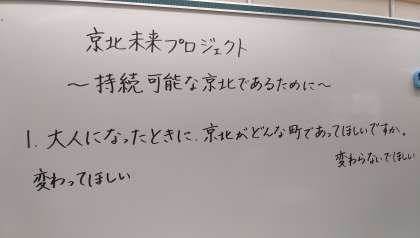 京北未来プロジェクト
～持続可能な京北であるために～
1. 大人になったときに、京北がどんな町であってほしいですか。
変わらないでほしい
変わってほしい